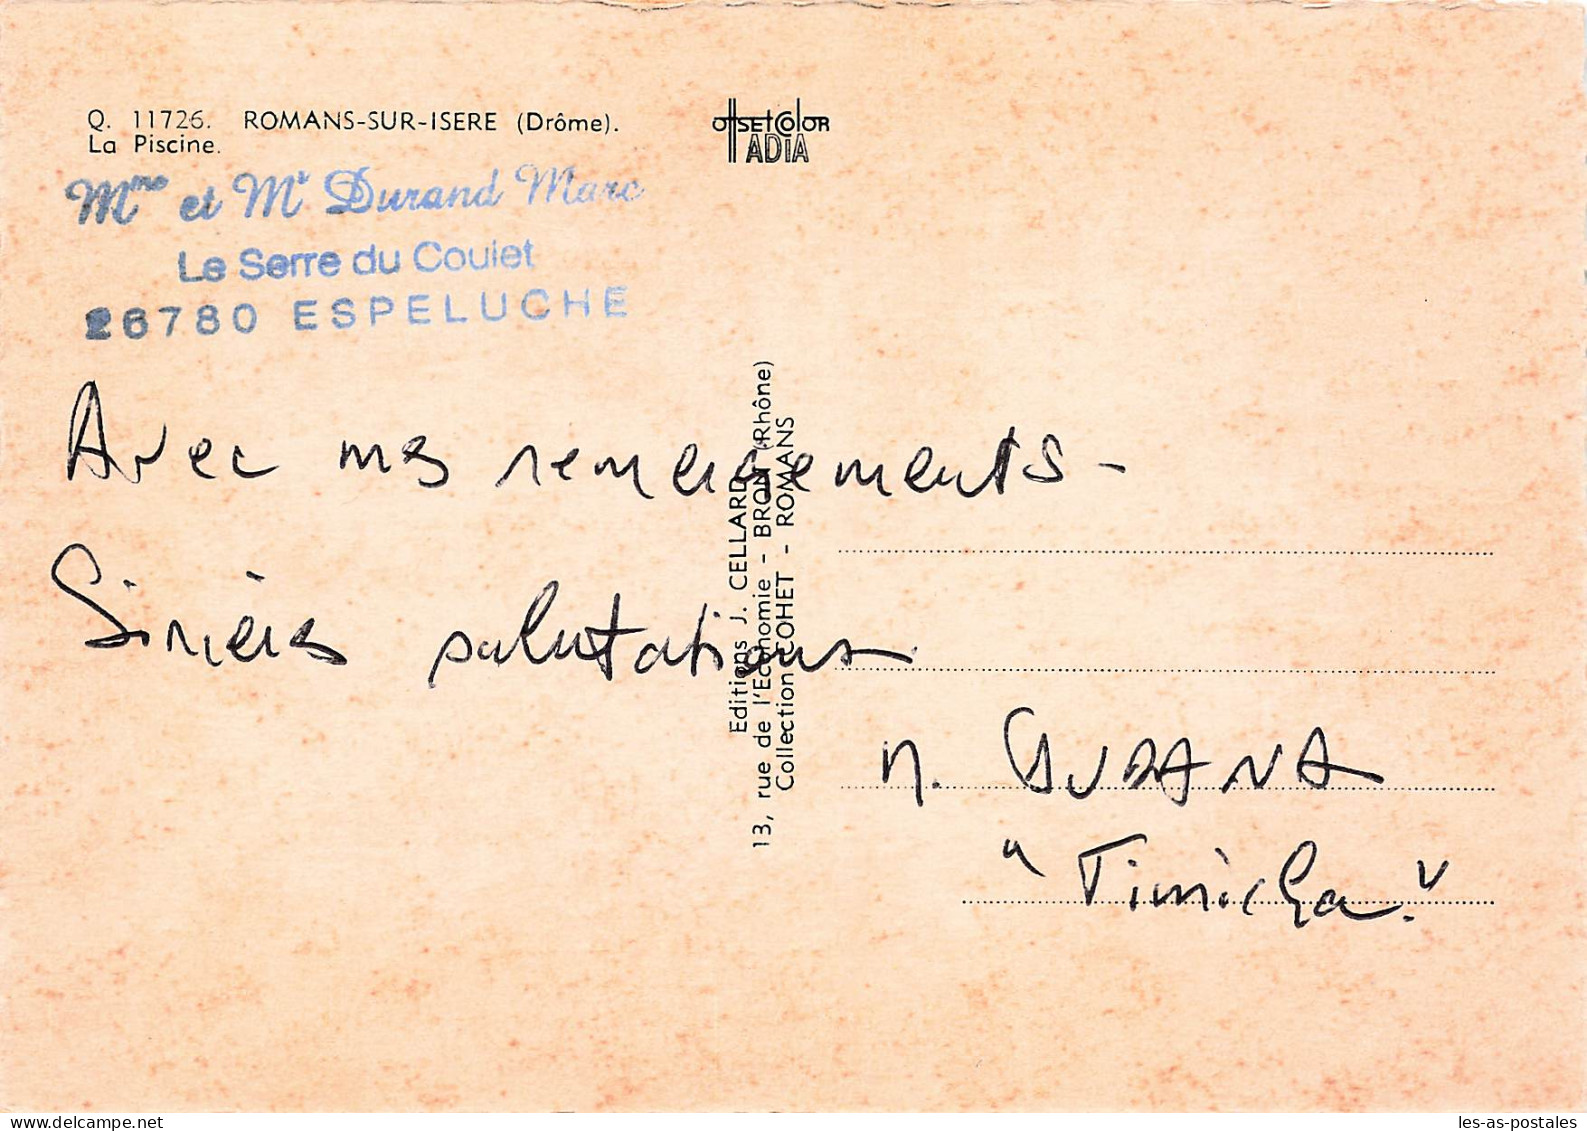 Q. 11726. ROMANS-SUR-ISERE (Drôme).
La Piscine.
offset color
ADIA
Mme et Mr Durand Marc
Le Serre du Coulet
26780 ESPELUCHE
Avec mes remerciements -
Sincères salutations
Editions J. CELLARD
13, rue de l'Economie - BRON (Rhône)
Collection COHET - ROMANS
M.
" "
delcampe.net
les-as-postales